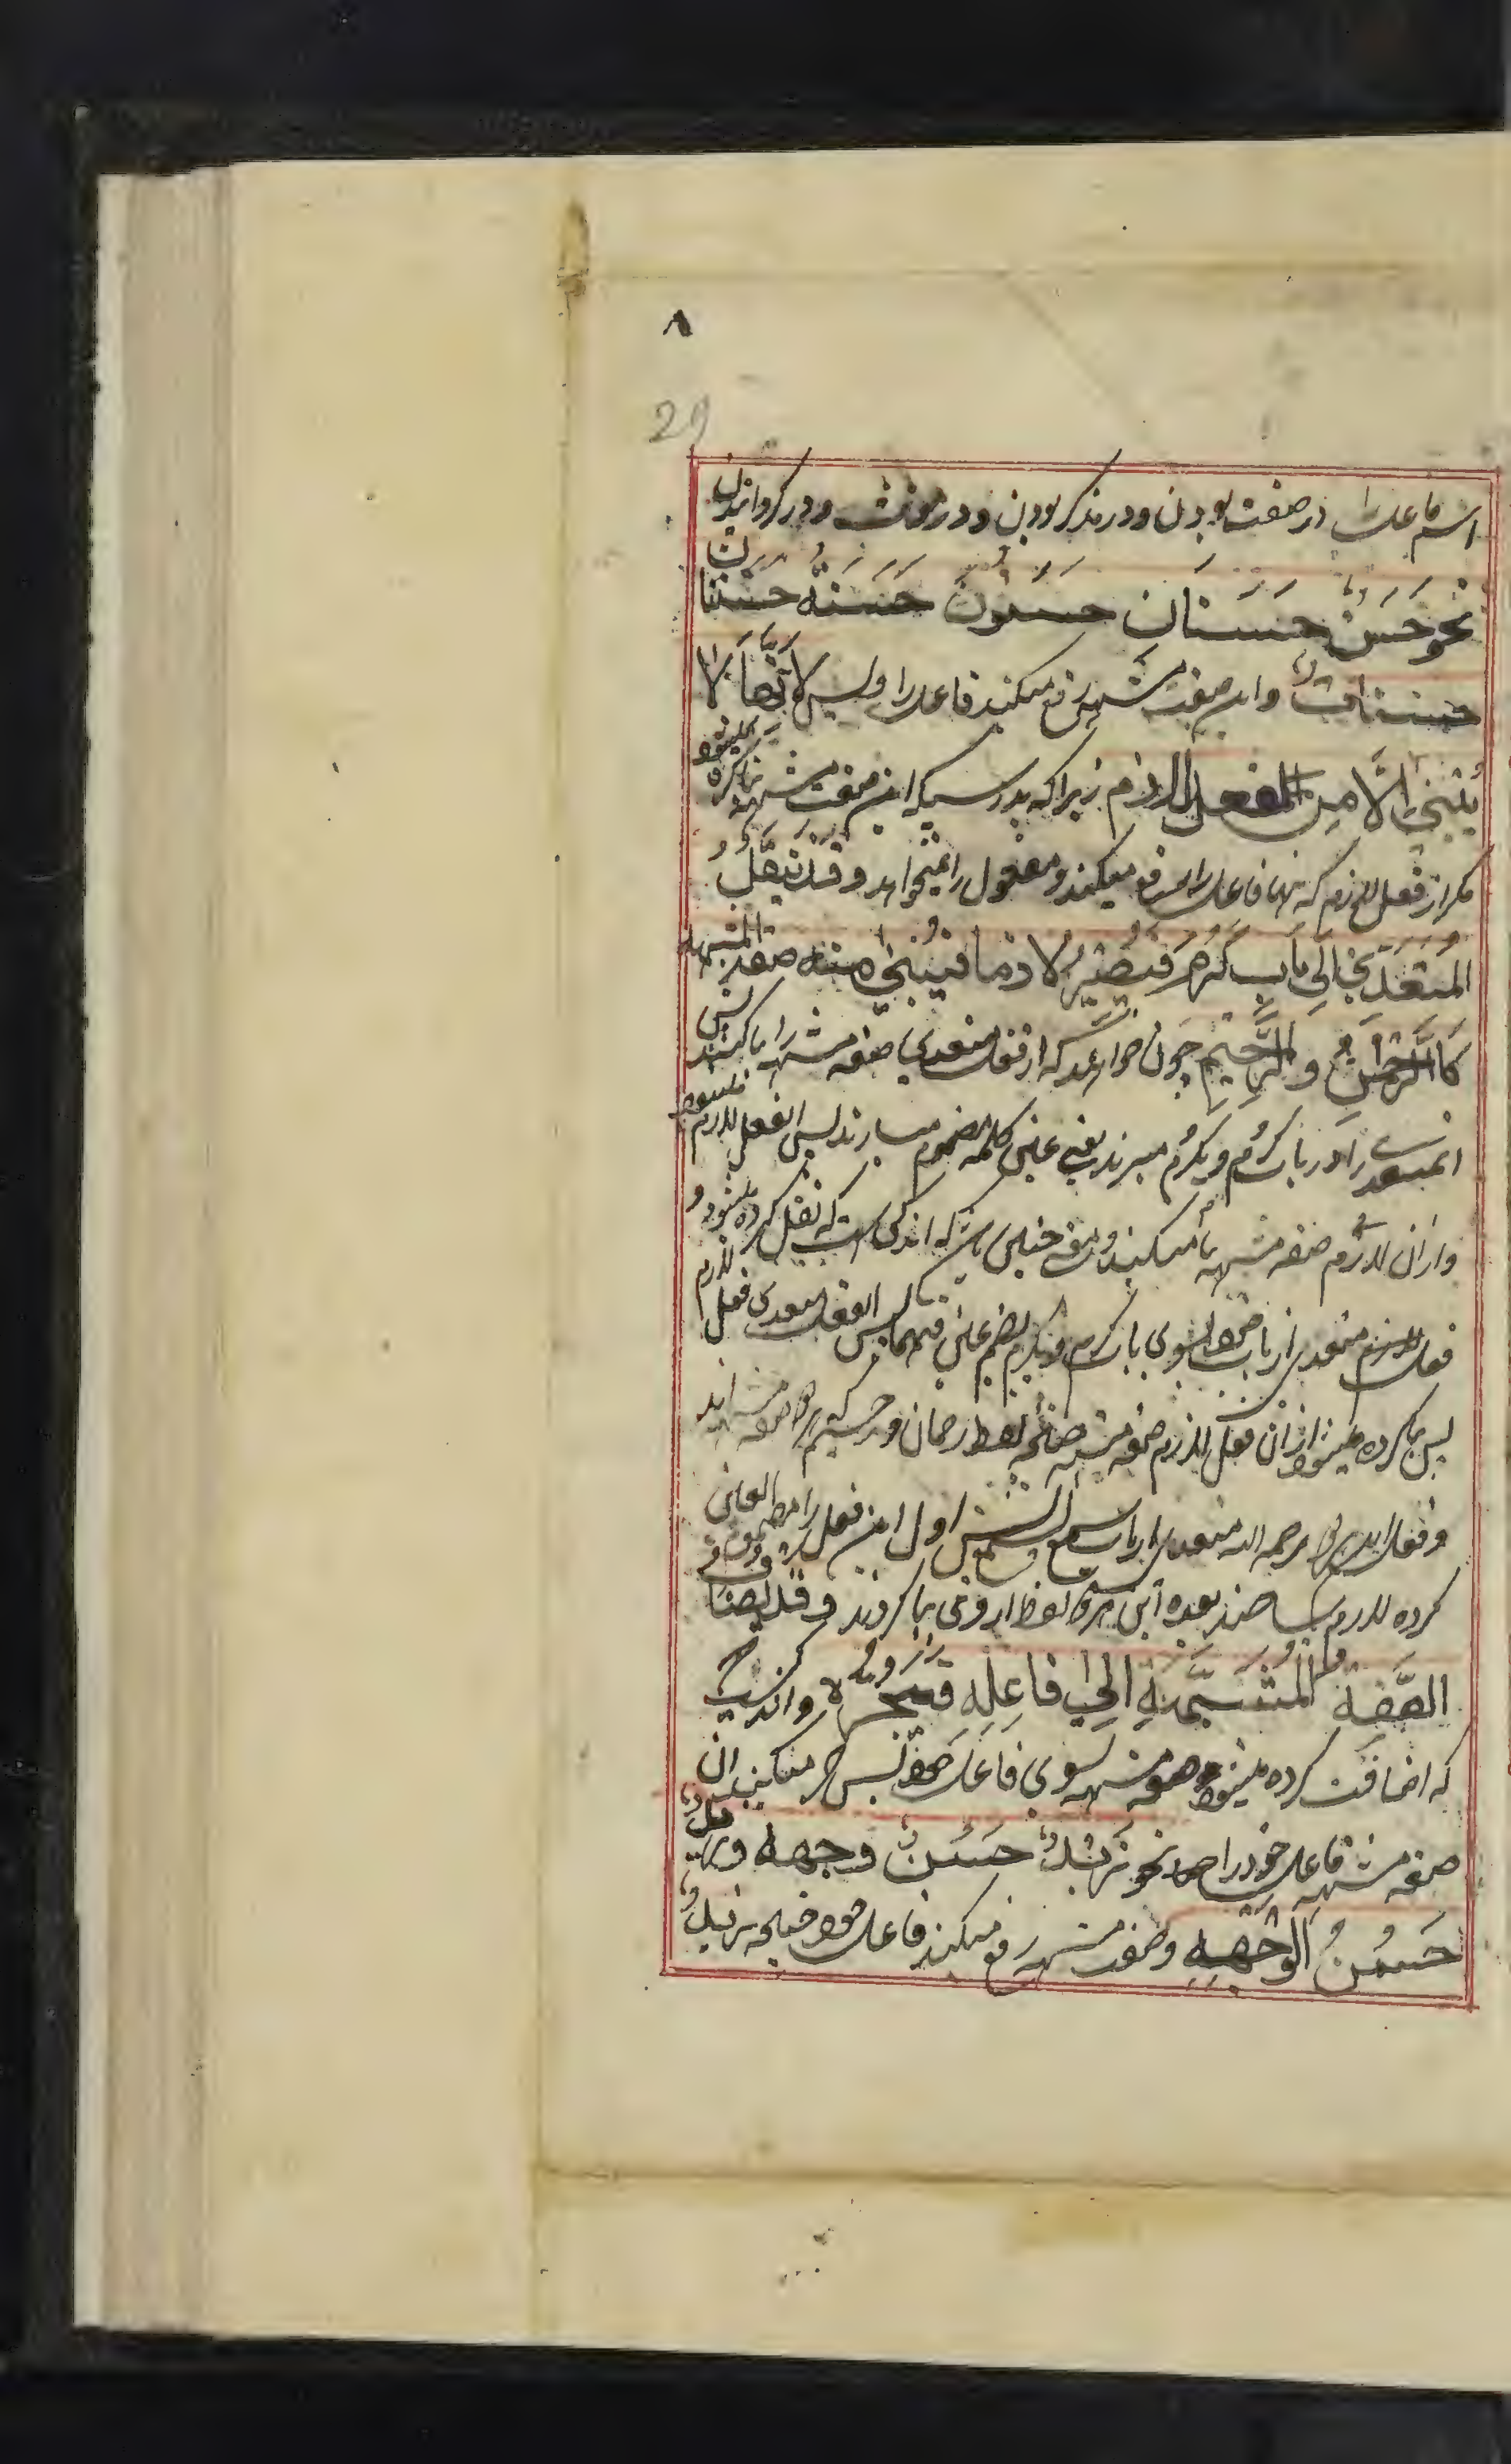 ۸
29
اسم فاعل را در صفت بودن و در مذکر بودن و در مونث و در گردانیدن
نحو حَسَنٌ حَسَنَانِ حَسَنُوْنَ حَسَنَةٌ حَسَنَتَانِ
حَسَنَاتٌ و این صفت مشبهه رفع میکند فاعل را و لیس لانّها لا
یُبْنٰی اِلَّا مِن الفعل اللازم زیرا که بدرستیکه این صفت مشبهه بنا کرده نمیشود
مکر از فعل لازم که تنها فاعل را رفع میکند و مفعول را نمیخواهد و قد یُنْقَلُ
المُتَعَدِّی اِلٰی بَابِ کَرُمَ فَیَصِیْرُ لازما فیُبْنٰی منه صفة المشبهه
کَالرَّحْمٰنِ وَالرَّحِیْمِ چون خواهند که از فعل متعدی صفه مشبهه را بنا کنند پس
آن متعدی را در باب کَرُمَ و یَکْرُمُ میبرند یعنی عین کلمه مضموم میسازند پس آن فعل لازم میشود
و از آن لازم صفه مشبهه بنا میکنند و معنی چنین باشد که اندکی است که نقل کرده میشود
فعل متعدی از باب خود بسوی باب کرم و یکرم بضم عین فیهما پس آن فعل متعدی فعل لازم
پس بنا کرده میشود از آن فعل لازم صفه مشبهه چنانچه لفظ رحمان و رحیم که هر دو صفه مشبهه اند
و فعل این هر دو رحمه الله متعدی از باب سمع یسمع پس اول این فعل را مضموم العین
کرده لازم ساختند بعده این هر دو لفظ از وی بنا کردند و قد یُضَافُ
الصِّفَةُ المُشَبَّهَةِ اِلٰی فَاعِلِهِ فَتَجُرُّهُ و اندکیست
که اضافت کرده میشود صفه مشبهه بسوی فاعل خود پس جر میکند آن
صفه مشبهه فاعل خود را نحو زَیْدٌ حَسَنُ وجهه و زیدٌ
حَسَنُ الْوَجْهِ و صفت مشبهه رفع میکند فاعل خود چنانچه زیدٌ